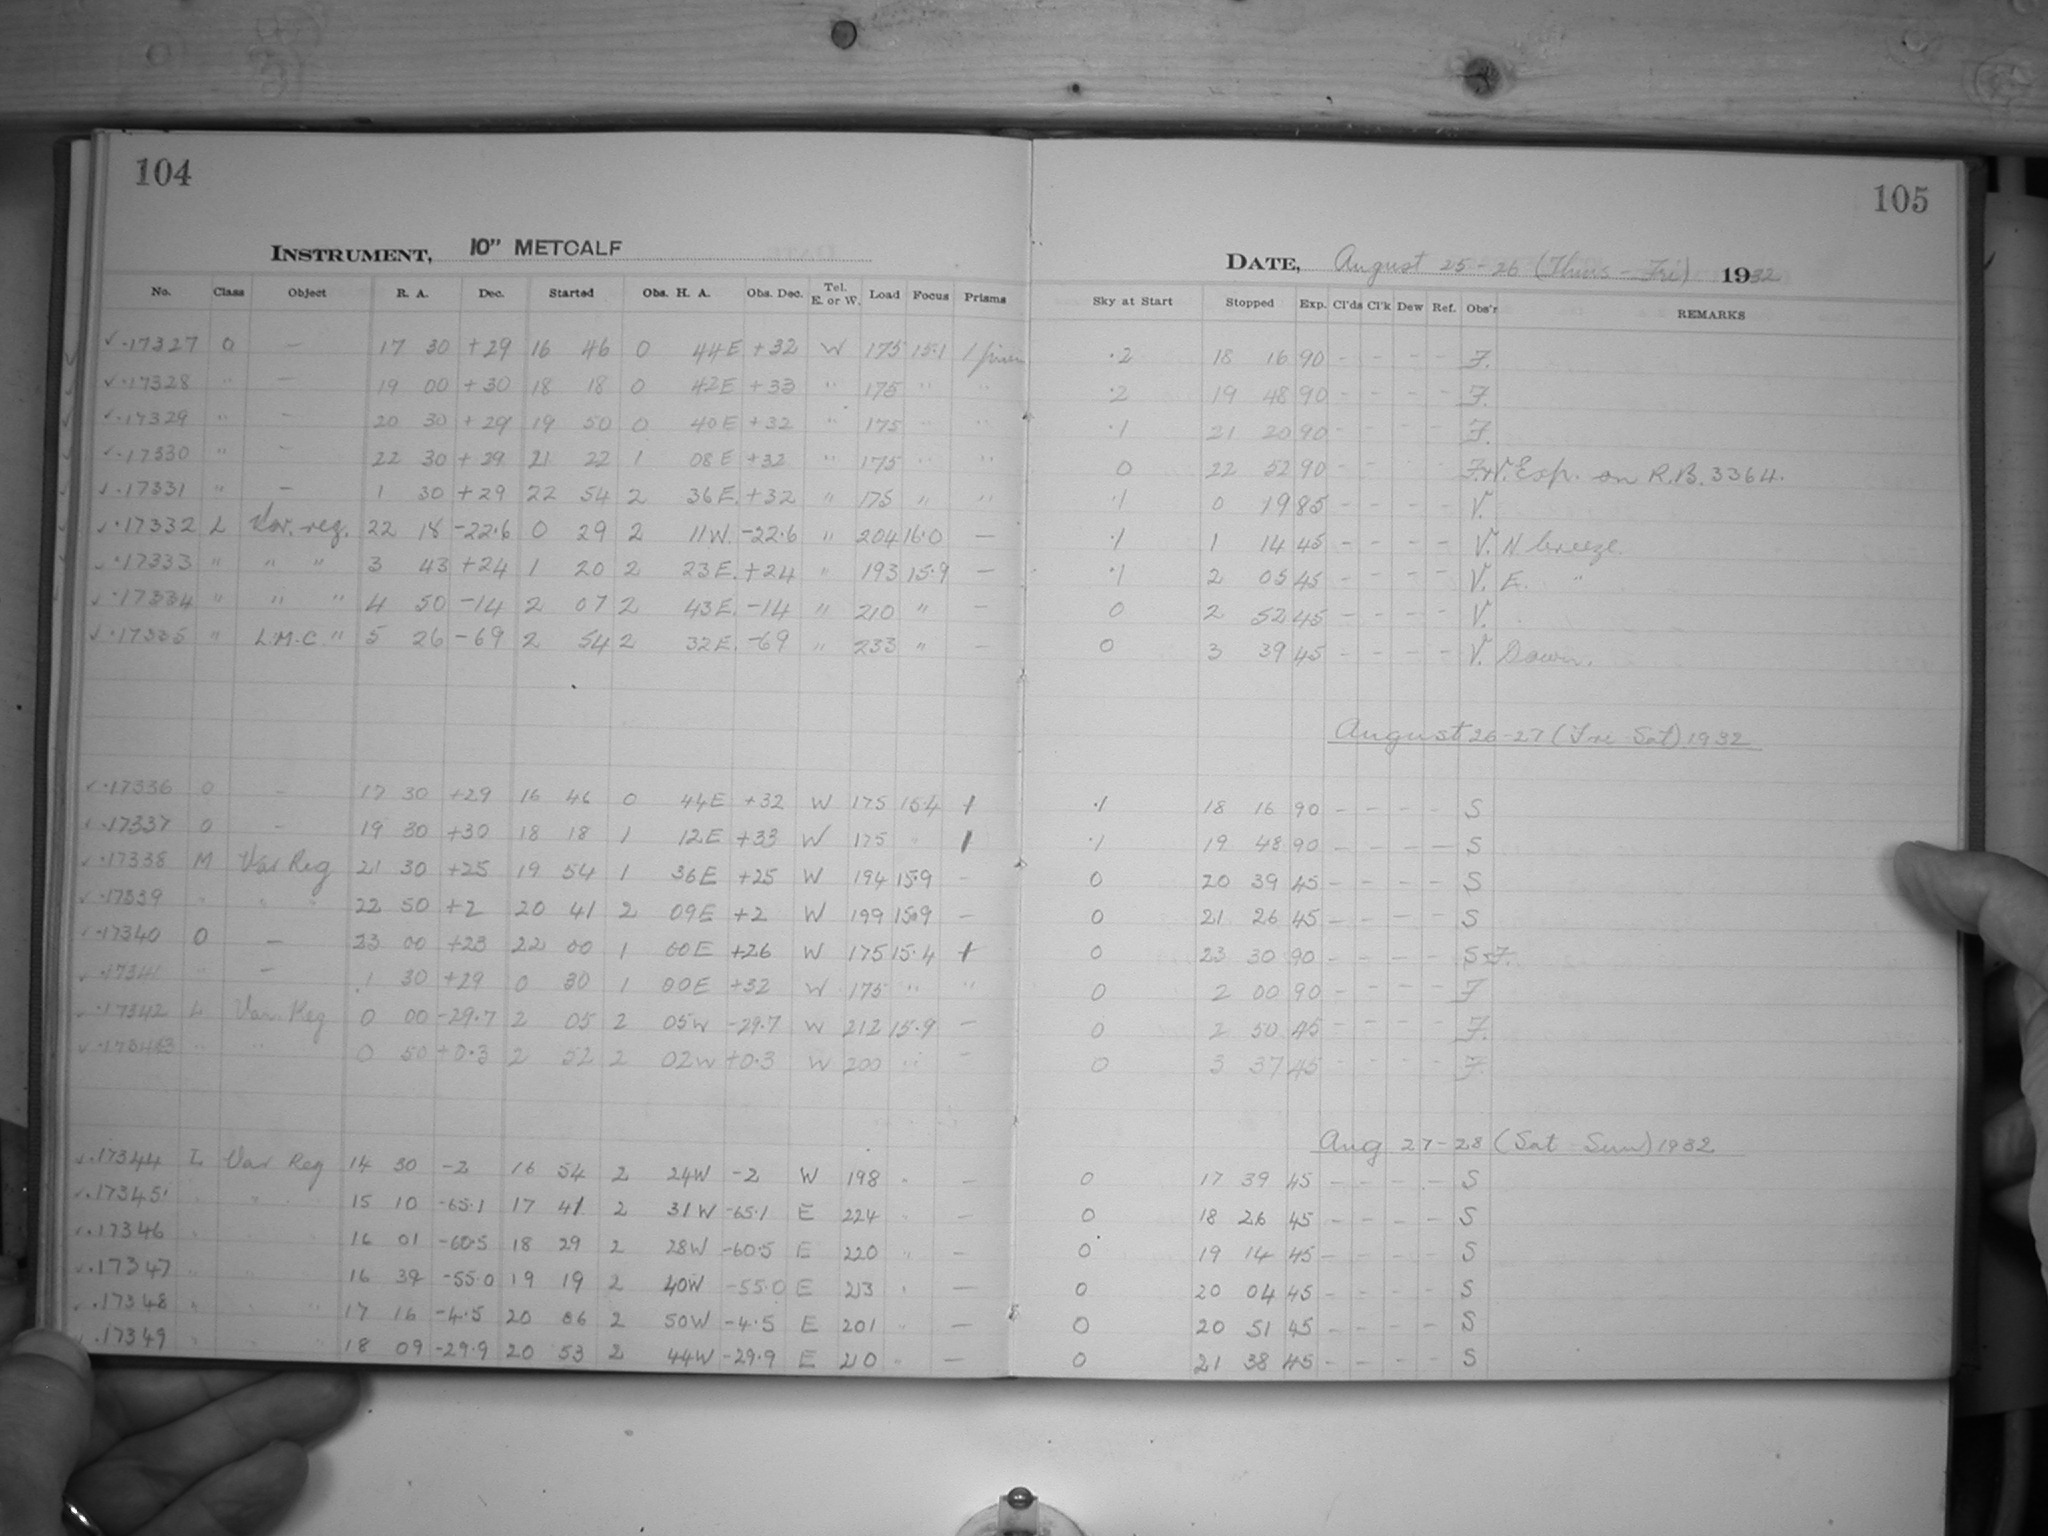 104
105
INSTRUMENT, 10" METCALF
DATE, August 25-26 (Thurs - Fri) 1932
No. Class Object R. A. Dec. Started Obs. H. A. Obs. Dec. Tel. E. or W. Load Focus Prisms Sky at Start Stopped Exp. Cl'ds Cl'k Dew Ref. Obs'r REMARKS
✓·17327 O — 17 30 +29 16 46 0 44E +32 W 175 15.1 ·2 18 16 90 - - - - F.
✓·17328 " — 19 00 +30 18 18 0 42E +33 " 175 " " ·2 19 48 90 - - - - F.
✓·17329 " — 20 30 +29 19 50 0 40E +32 " 175 " " ·1 21 20 90 - - - - F.
✓·17330 " — 22 30 +29 21 22 1 08E +32 " 175 " " 0 22 52 90 - - - - F.+V. Exp. on R.B. 3364.
✓·17331 " — 1 30 +29 22 54 2 36E. +32 " 175 " " ·1 0 19 85 - - - - V.
✓·17332 L Var. reg. 22 18 -22.6 0 29 2 11W. -22.6 " 204 16.0 — ·1 1 14 45 - - - - V. N breeze.
✓·17333 " " " 3 43 +24 1 20 2 23E. +24 " 193 15.9 — ·1 2 05 45 - - - - V. E. "
✓·17334 " " " 4 50 -14 2 07 2 43E. -14 " 210 " — 0 2 52 45 - - - - V.
✓·17335 " L.M.C. " 5 26 -69 2 54 2 32E. -69 " 233 " — 0 3 39 45 - - - - V. Dawn.
August 26-27 (Fri Sat) 1932
✓·17336 O - 17 30 +29 16 46 0 44E +32 W 175 15.4 1 ·1 18 16 90 - - - - S
✓·17337 O - 19 30 +30 18 18 1 12E +33 W 175 " 1 ·1 19 48 90 - - - - S
✓·17338 M Var Reg 21 30 +25 19 54 1 36E +25 W 194 15.9 - 0 20 39 45 - - - - S
✓·17339 " " " 22 50 +2 20 41 2 09E +2 W 199 15.9 — 0 21 26 45 - - - - S
✓·17340 O — 23 00 +23 22 00 1 00E +26 W 175 15.4 1 0 23 30 90 - - - - S+F.
✓·17341 " — 1 30 +29 0 30 1 00E +32 W 175 " " 0 2 00 90 - - - - F
✓·17342 L Var. Reg 0 00 -29.7 2 05 2 05W -29.7 W 212 15.9 — 0 2 50 45 - - - - F.
✓·17343 " " 0 50 +0.3 2 52 2 02W +0.3 W 200 " - 0 3 37 45 - - - - F.
Aug 27-28 (Sat Sun) 1932
✓·17344 L Var Reg 14 30 -2 16 54 2 24W -2 W 198 " — 0 17 39 45 - - - - S
✓·17345 " " " 15 10 -65.1 17 41 2 31W -65.1 E 224 " — 0 18 26 45 - - - - S
✓·17346 " " " 16 01 -60.5 18 29 2 28W -60.5 E 220 " — 0 19 14 45 - - - - S
✓·17347 " " " 16 39 -55.0 19 19 2 40W -55.0 E 213 " — 0 20 04 45 - - - - S
✓·17348 " " " 17 16 -4.5 20 06 2 50W -4.5 E 201 " — 0 20 51 45 - - - - S
✓·17349 " " " 18 09 -29.9 20 53 2 44W -29.9 E 210 " — 0 21 38 45 - - - - S